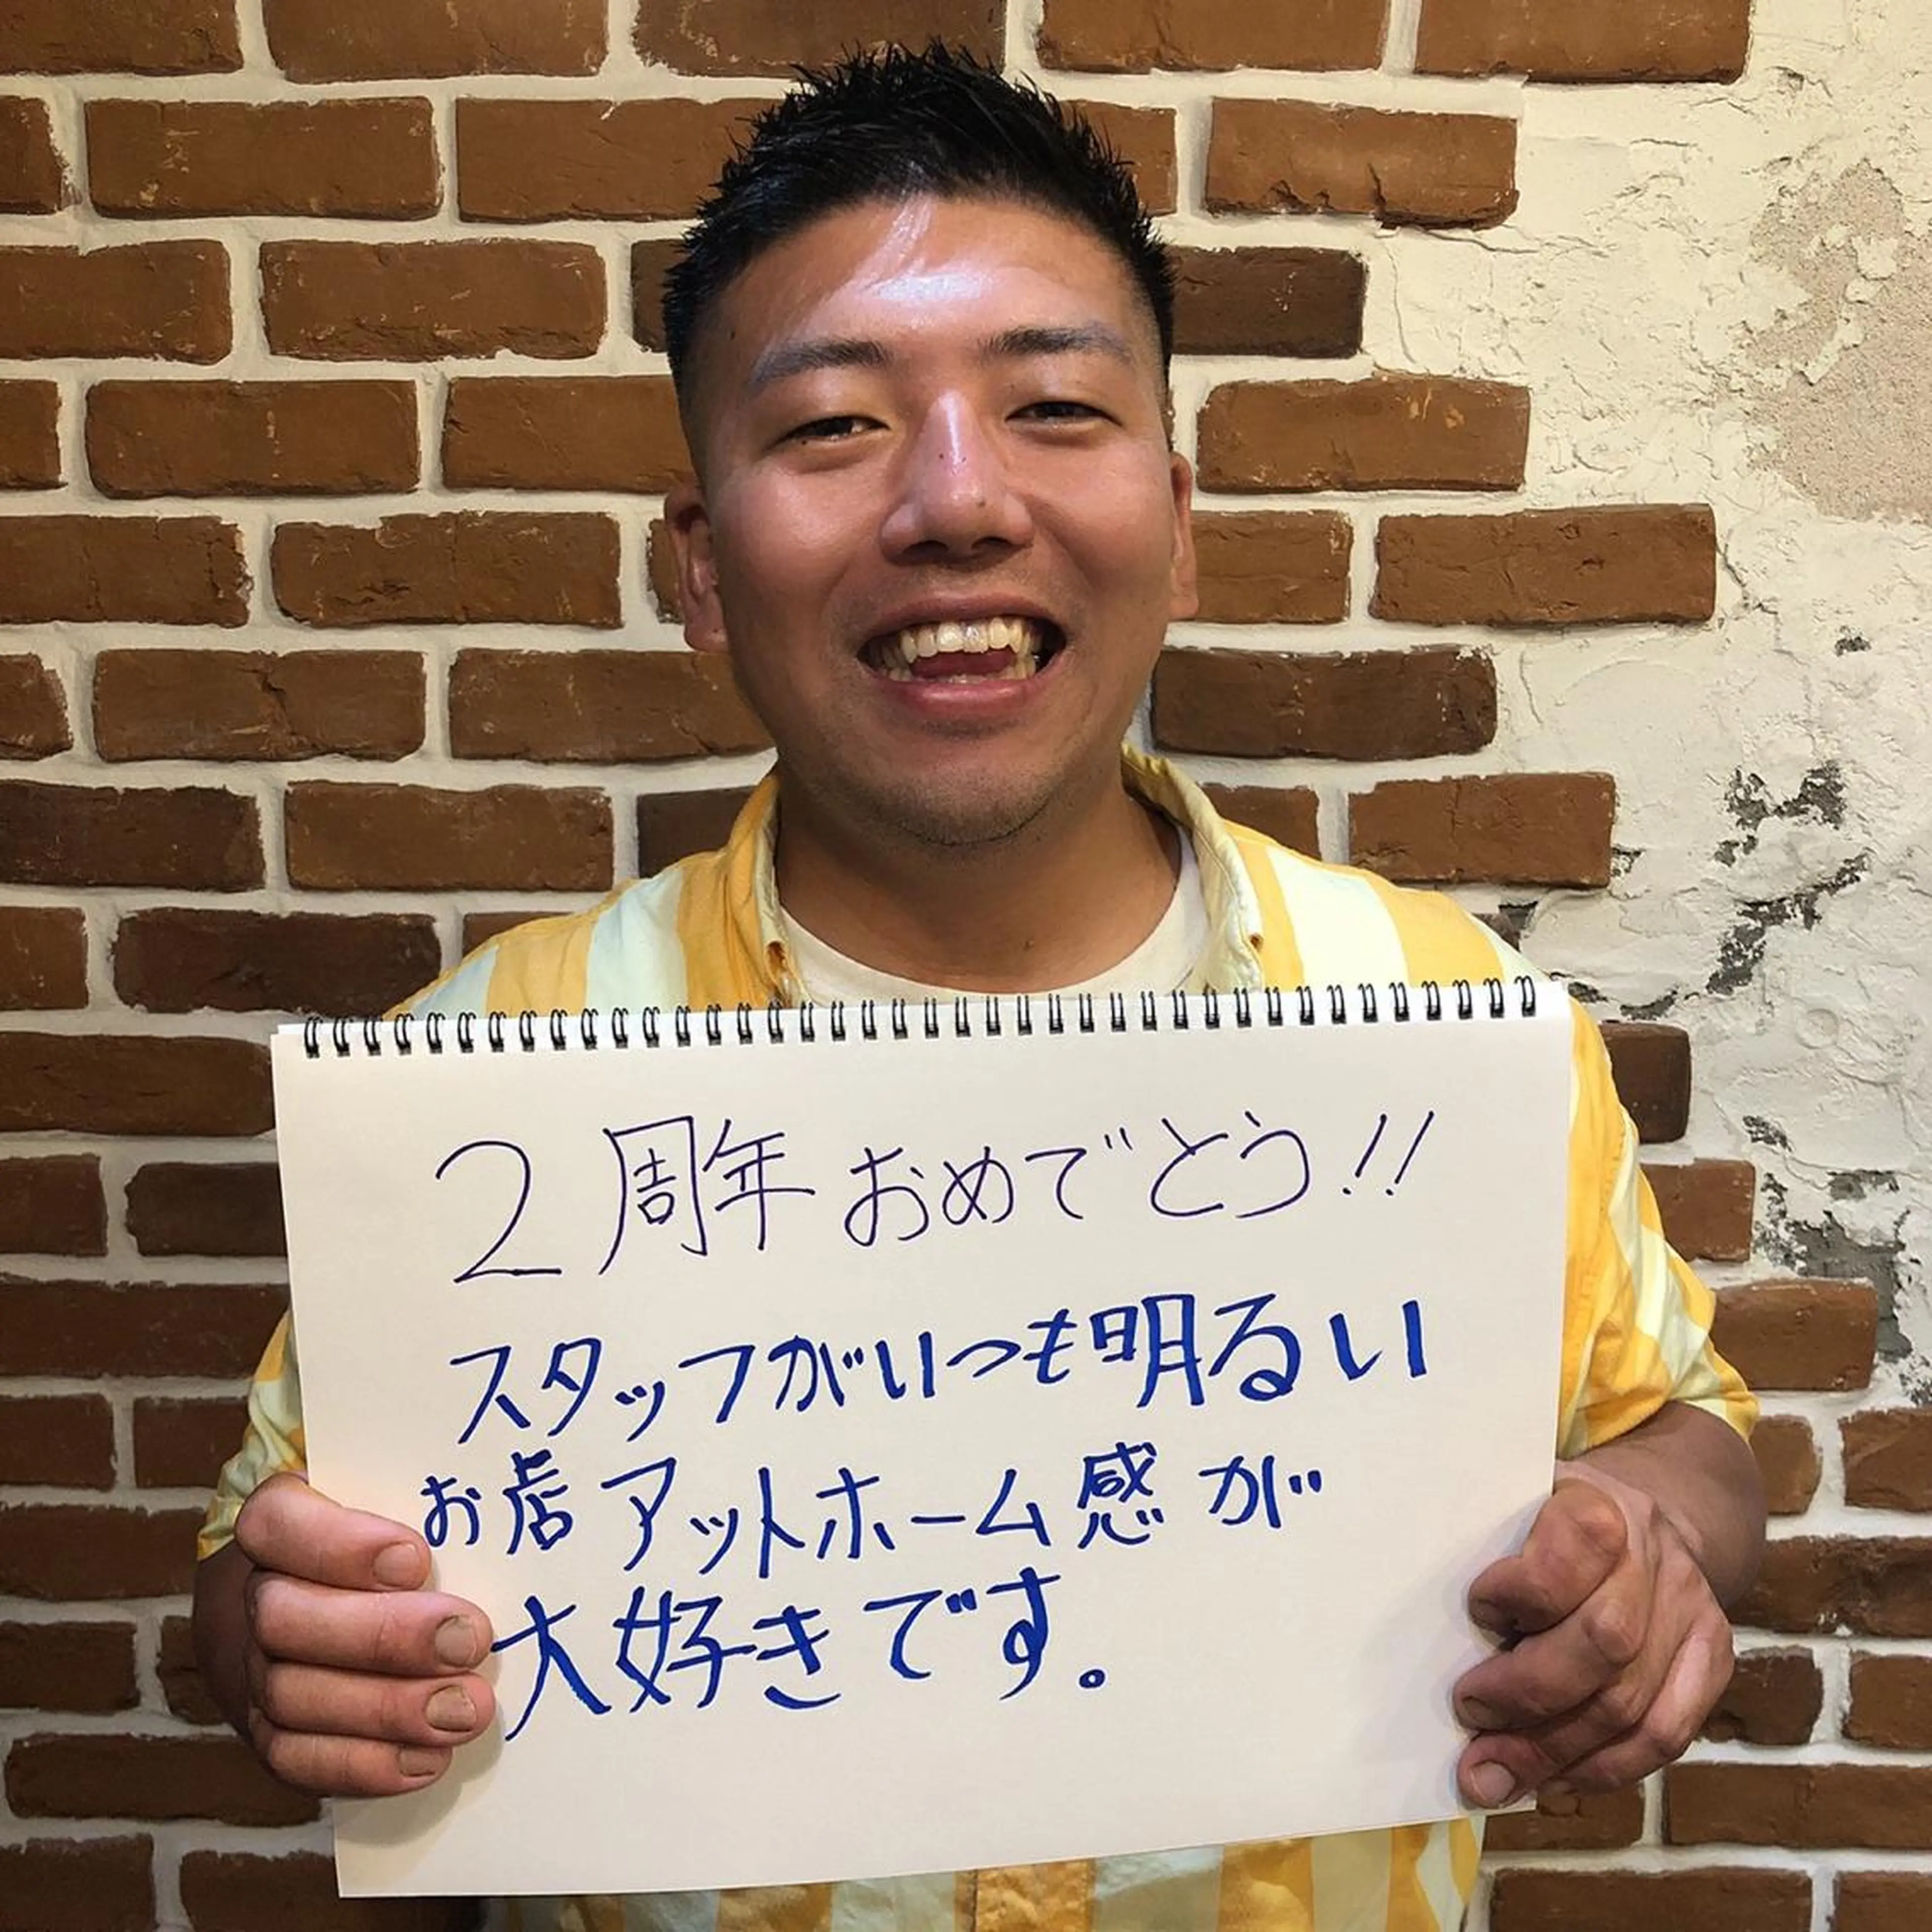 2周年おめでとう!!
スタッフがいつも明るい
お店アットホーム感が
大好きです。